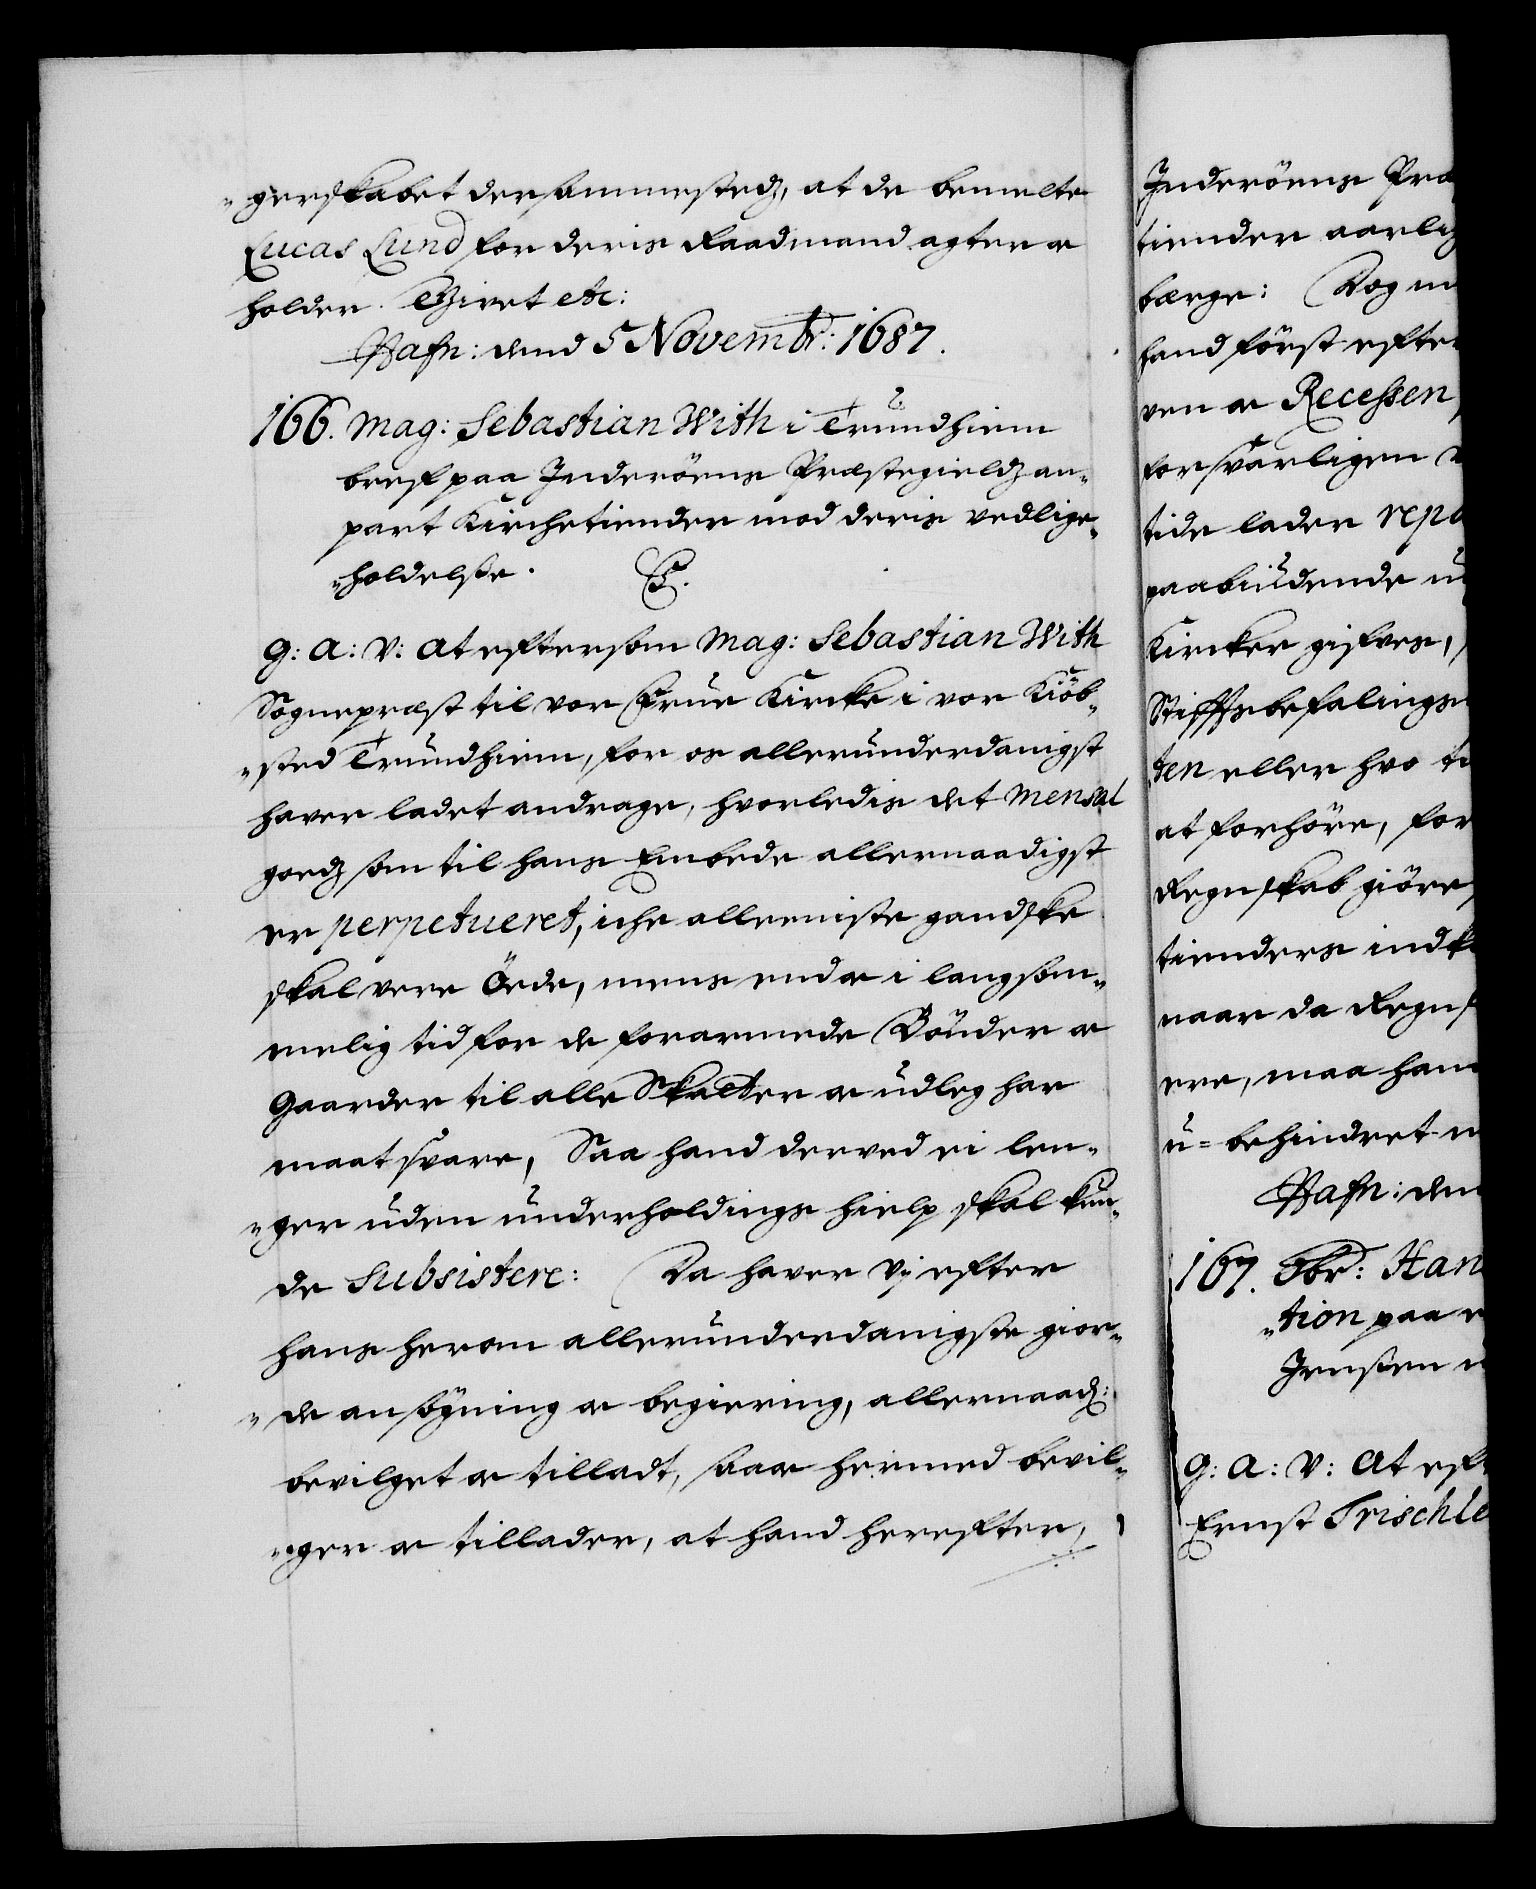 „gerskabet dersammestedz, at de bemelte
Lucas Lund for deris Raadmand agter og
holder. Gifvet etc:
Hafn: dend 5 Novembr: 1687.
166. Mag: Sebastian With i Trundhiem
bref paa Inderöens Præstegieldz an„
part Kirchetiender mod deris vedlige„
„holdelsse. C.
G: A: V: At eftersom Mag: Sebastian With
Sognepræst til vor Frue Kircke i vor Kiöb„
„sted Trundhiem, for os allerunderdanigst
haver ladet andrage, hvorledis det Mensal
goedz som til hans Embede allernaadigst
er perpetueret, iche alleeniste gandske
skal vere Öede, mens end og i langsom„
melig tid for de forarmede Bönder og
Gaarder til alle Skatter og udleg har
maat svare, Saa hand derved ei len„
„ger uden underholdings hielp skal kun„
de Subsistere: Da haver Vi efter
hans herom allerunderdanigste gior„
„de ansögning og begiering, allernaad:
bevilget og tilladt, saa og hermed bevil„
„ger og tillader, at hand herefter,
Inderöens Præ
tiender aarlig
berge: Dog m
hand först efter
ven og Recessen,
forsvarligen
tide lader repa
paabiudende u
Kircker gifves,
Stifftsbefalings
ten eller hvo
at forhöre, for
Regnskab giöre,
tienders ind
naar da Regns
ere, maa han
u=behindret
Hafn: den
167. Obr: Han
„tion paa
Jensen
G: A: V: At eft
Ernst Trischle